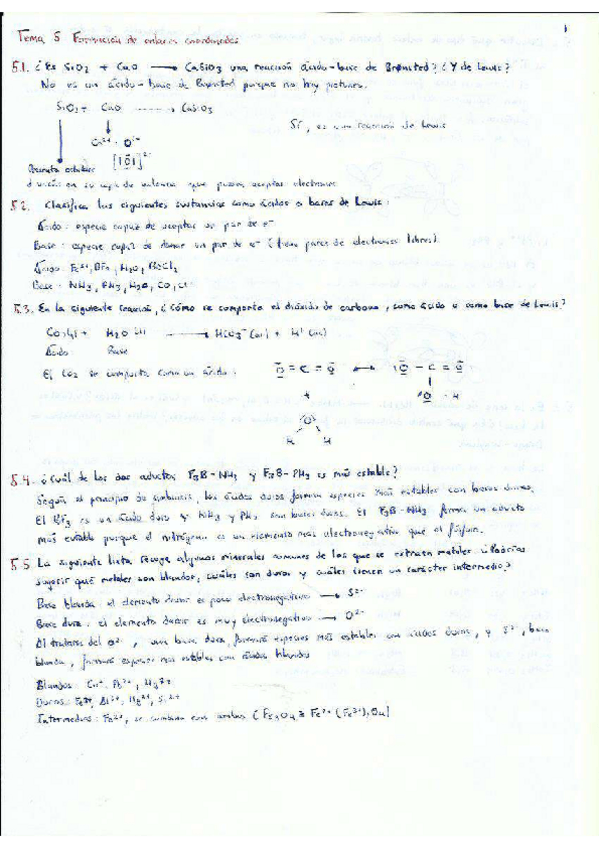 1
Tema 5 Formación de enlaces coordenados
5.1. ¿Es SiO2 + CaO → CaSiO3 una reacción ácido-base de Brønsted? ¿Y de Lewis?
No es un ácido-base de Brønsted porque no hay protones.
SiO2 + CaO → CaSiO3
Sí, es una reacción de Lewis
Ca2+ · O2-
[|O|]2-
en su capa de valencia que puedan aceptar electrones
5.2. Clasifica las siguientes sustancias como ácidos o bases de Lewis:
Ácido: especie capaz de aceptar un par de e-
Base: especie capaz de donar un par de e- (tiene pares de electrones libres)
Ácido: Fe3+, BF3, H2O,
Base = NH3, PH3, H2O, CO, Cl-
5.3. En la siguiente reacción, ¿cómo se comporta el dióxido de carbono, como ácido o como base de Lewis?
CO2(g) + H2O (l) → HCO3- (ac) + H+ (ac)
Ácido Base
El CO2 se comporta como un ácido: O = C = O ↔ O - C = O
+ O - H
O
H H
5.4. ¿Cuál de los dos aductos F3B-NH3 y F3B-PH3 es más estable?
Según el principio de simbiosis, los ácidos duros forman especies más estables con bases duras.
El BF3 es un ácido duro y NH3 y PH3 son bases duras. El F3B-NH3 forma un aducto
más estable porque el nitrógeno es un elemento más electronegativo que el fósforo.
5.5 La siguiente lista recoge algunos minerales comunes de los que se extraen metales ¿Podrías
sugerir qué metales son blandos, cuáles son duros y cuáles tienen un carácter intermedio?
Base blanda: el elemento dador es poco electronegativo → S2-
Base dura: el elemento dador es muy electronegativo → O2-
Al tratarse del O2-, una base dura, formará especies más estables con ácidos duros, y S2-, base
blanda, formará especies más estables con ácidos blandos
Blandos: Pb2+, Hg2+
Duros: Al3+, Mg2+,
Intermedios: Fe2+, se combina con ambas (Fe3O4 ≡ Fe2+ (Fe3+)2O4)